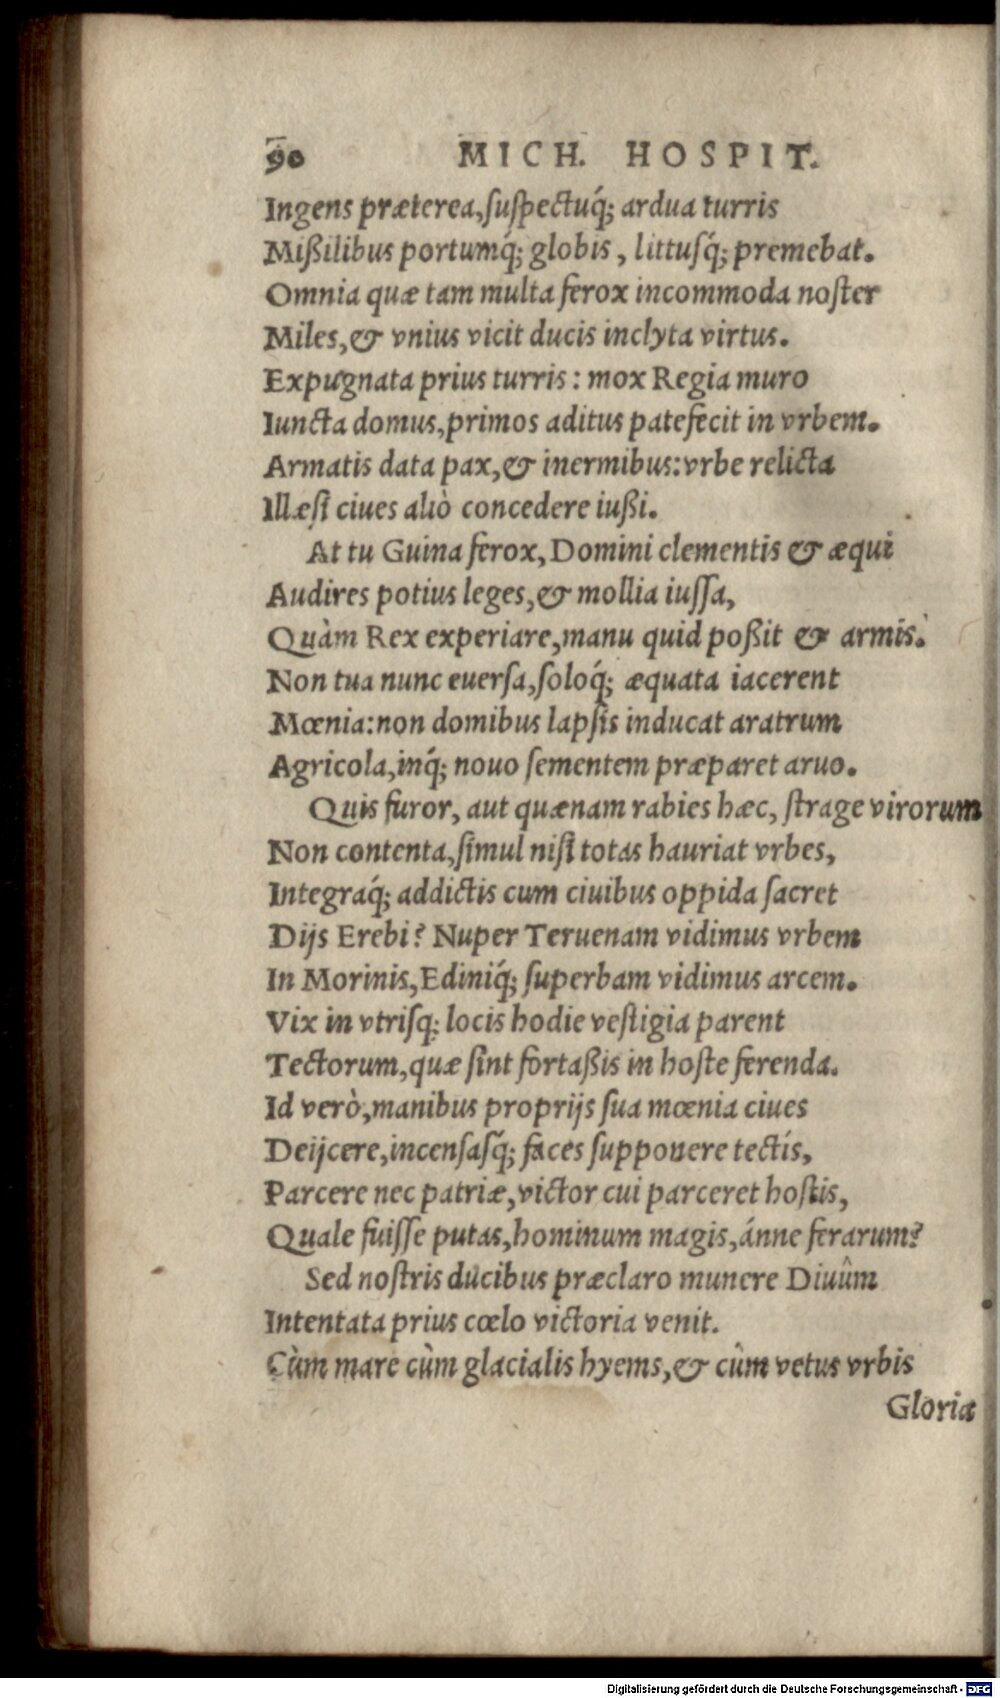 90 MICH. HOSPIT.
Ingens præterea,ſuſpectuq́; ardua turris
Mißilibus portumq́; globis, littuſq́; premebat.
Omnia quæ tam multa ferox incommoda noſter
Miles,& vnius vicit ducis inclyta virtus.
Expugnata prius turris: mox Regia muro
Iuncta domus,primos aditus patefecit in vrbem.
Armatis data pax,& inermibus:vrbe relicta
Illæſi ciues aliò concedere iußi.
At tu Guina ferox, Domini clementis & æqui
Audires potius leges,& mollia iuſſa,
Quàm Rex experiare,manu quid poßit & armis.
Non tua nunc euerſa,ſoloq́; æquata iacerent
Mœnia:non domibus lapſis inducat aratrum
Agricola,inq́; nouo ſementem præparet aruo.
Quis furor, aut quænam rabies hæc, ſtrage virorum
Non contenta,ſimul niſi totas hauriat vrbes,
Integraq́; addictis cum ciuibus oppida ſacret
Dijs Erebi? Nuper Teruenam vidimus vrbem
In Morinis,Ediniq́; ſuperbam vidimus arcem.
Vix in vtriſq; locis hodie veſtigia parent
Tectorum,quæ ſint fortaßis in hoſte ferenda.
Id verò,manibus proprijs ſua mœnia ciues
Deijcere,incenſaſq́; faces ſupponere tectis,
Parcere nec patriæ,victor cui parceret hoſtis,
Quale fuiſſe putas,hominum magis,ánne ferarum?
Sed noſtris ducibus præclaro munere Diuûm
Intentata prius cœlo victoria venit.
Cùm mare cùm glacialis hyems,& cûm vetus vrbis
Gloria
Digitalisierung gefördert durch die Deutsche Forschungsgemeinschaft - DFG